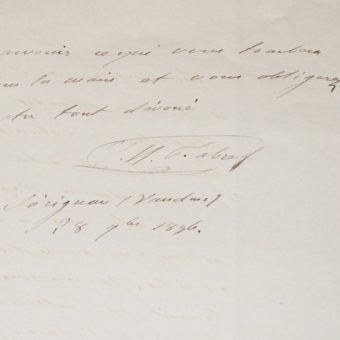 savoir ce qui vous tombera
sous la main et vous obligerez
votre tout dévoué
J. H. Fabre
Sérignan (Vaucluse)
28 9bre 1896.